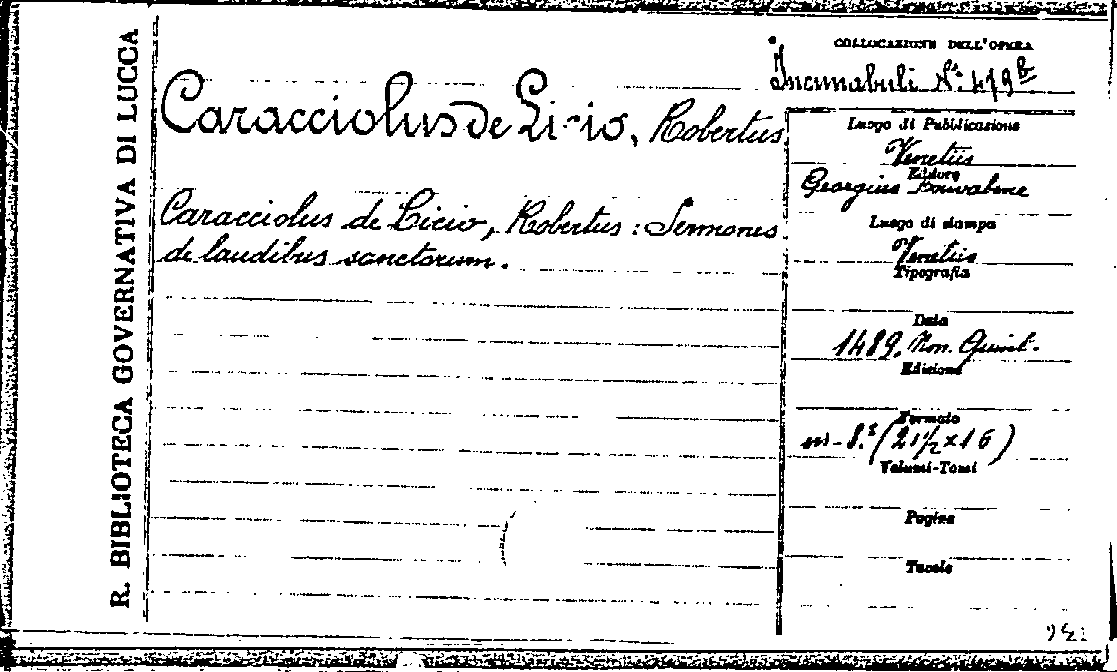 R. BIBLIOTECA GOVERNATIVA DI LUCCA
COLLOCAZIONE DELL'OPERA
Incunabuli N.º 479 b
Caracciolus de Licio, Robertus
Caracciolus de Licio, Robertus : Sermones
de laudibus sanctorum.
Luogo di Pubblicazione
Venetiis
Editore
Georgius
Luogo di stampa
Venetiis
Tipografia
Data
1489. Non. Quint.
Edizione
Formato
in-8.º (21½ × 16)
Volumi-Tomi
Pagine
Tavole